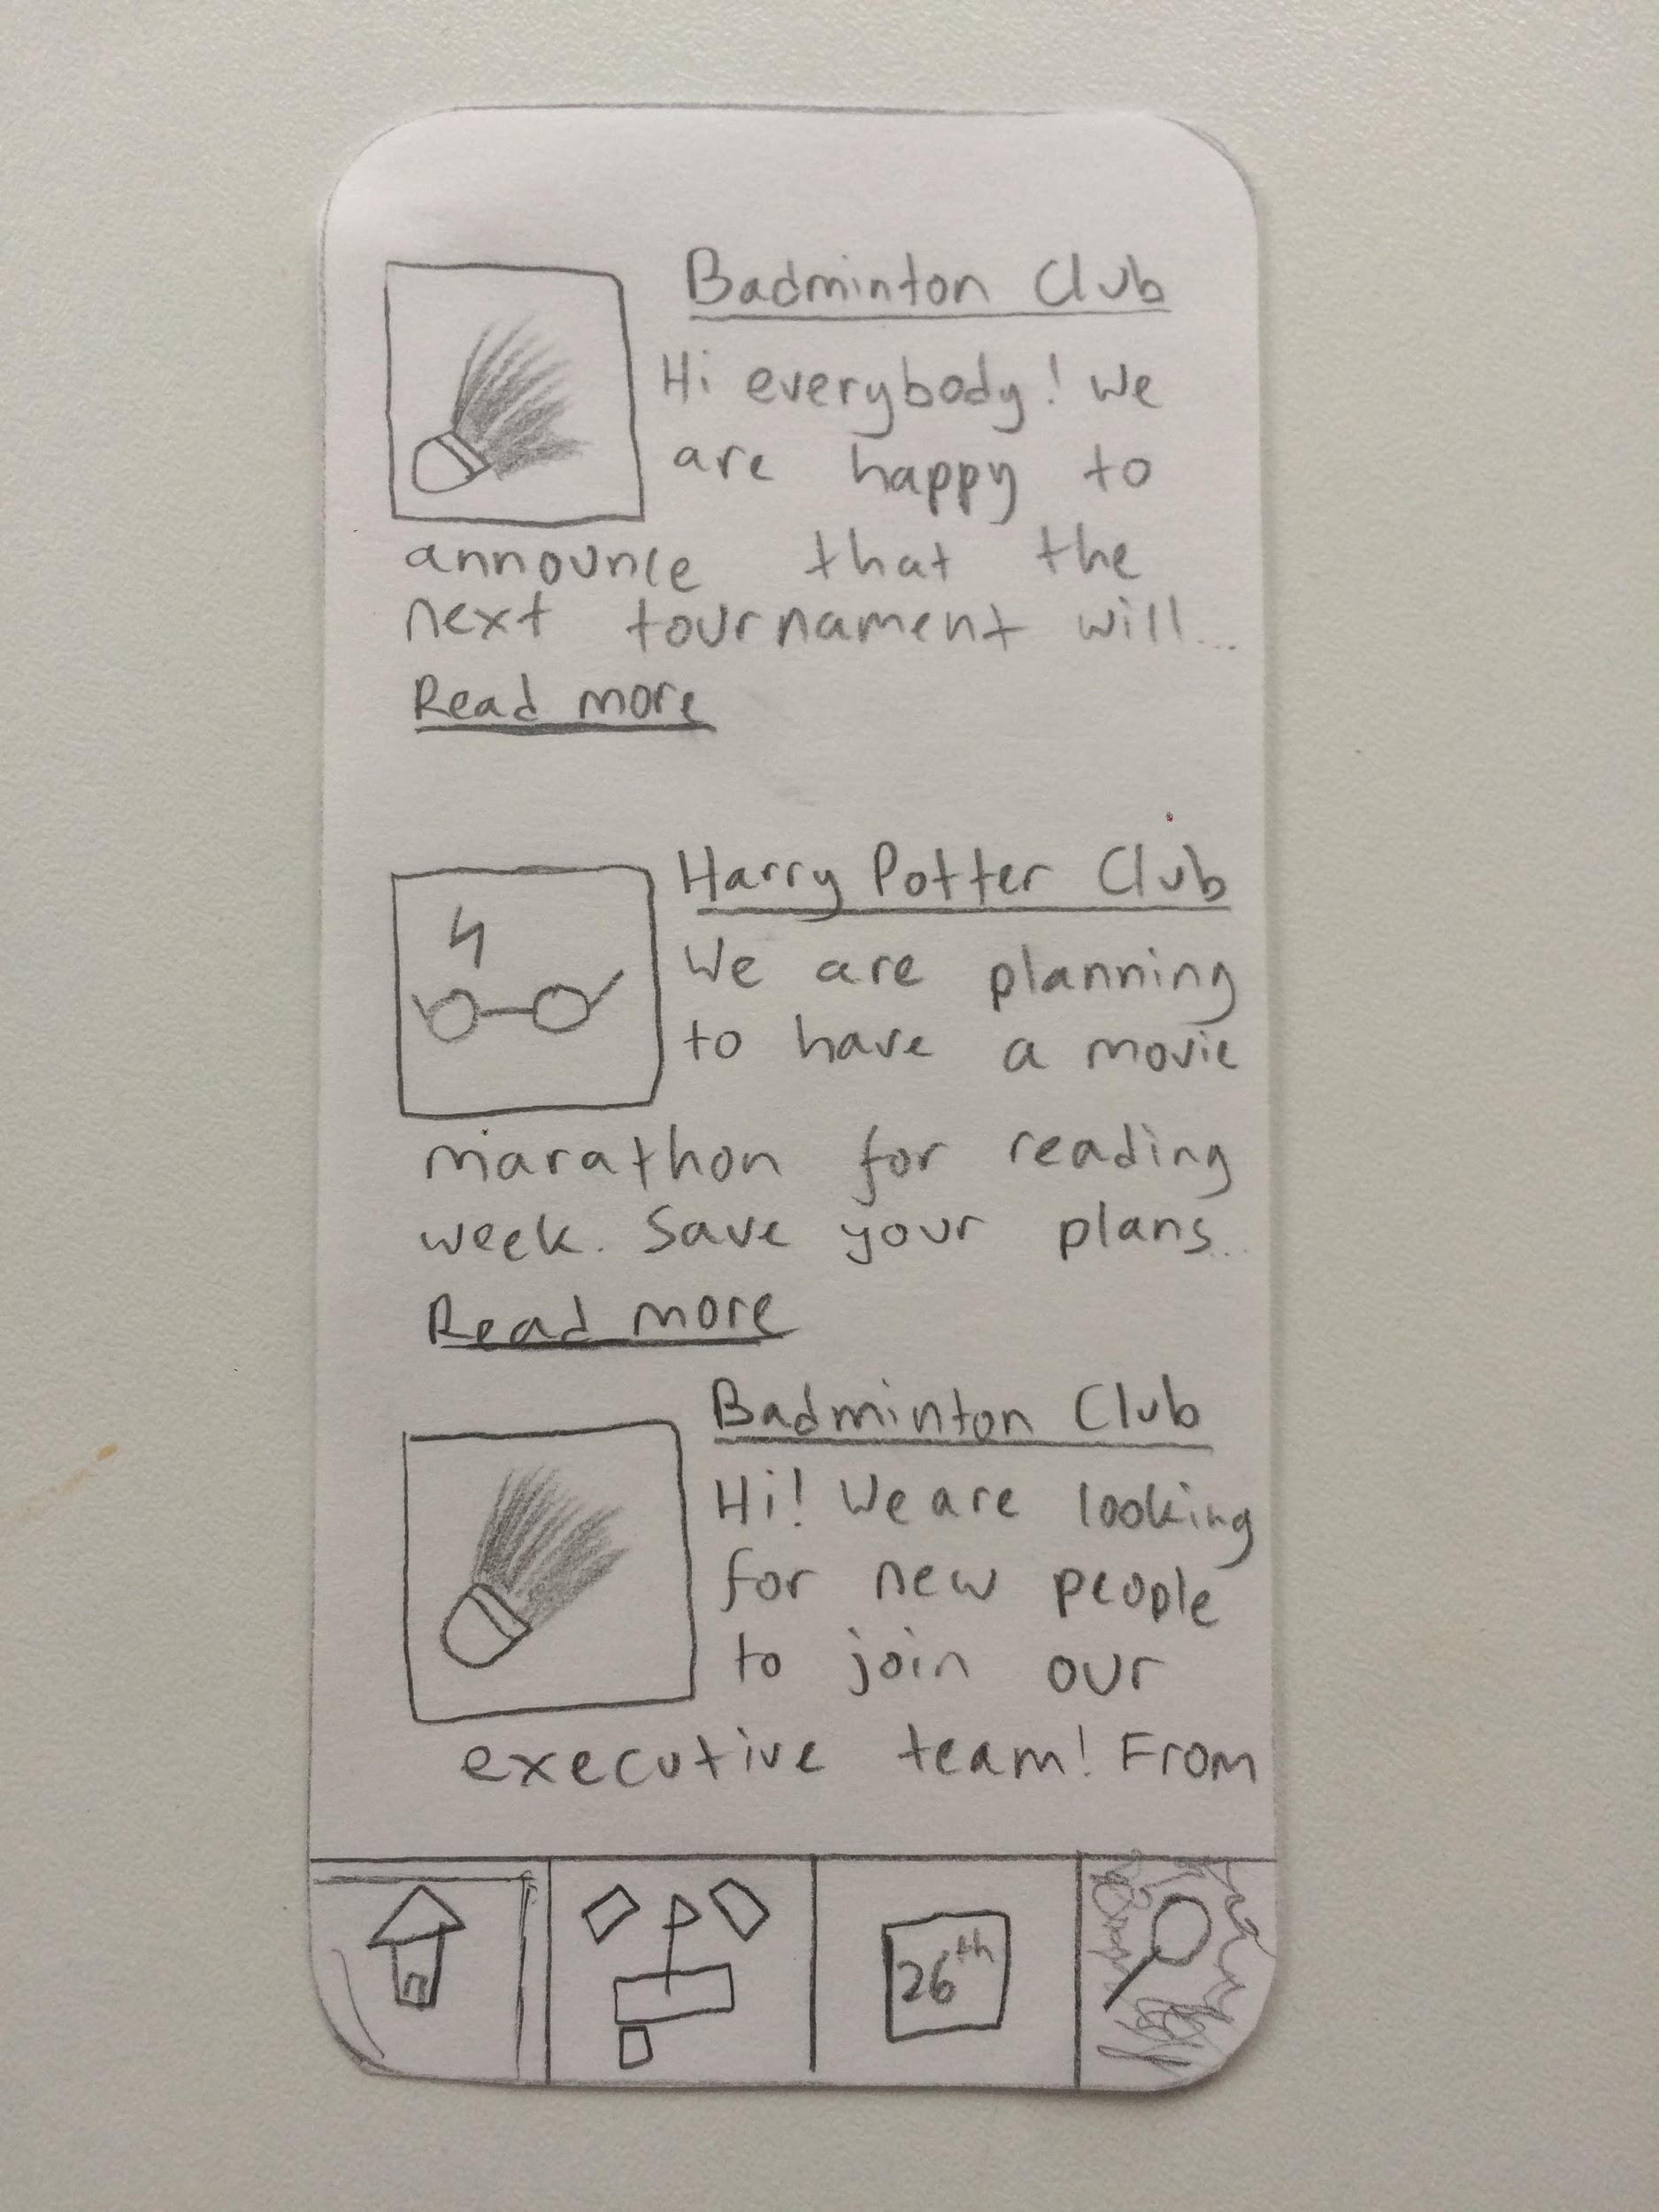 Badminton Club
Hi everybody! We
are happy to
announce that the
next tournament will...
Read more
Harry Potter Club
We are planning
to have a movie
marathon for reading
week. Save your plans...
Read more
Badminton Club
Hi! We are looking
for new people
to join our
executive team! From
26th